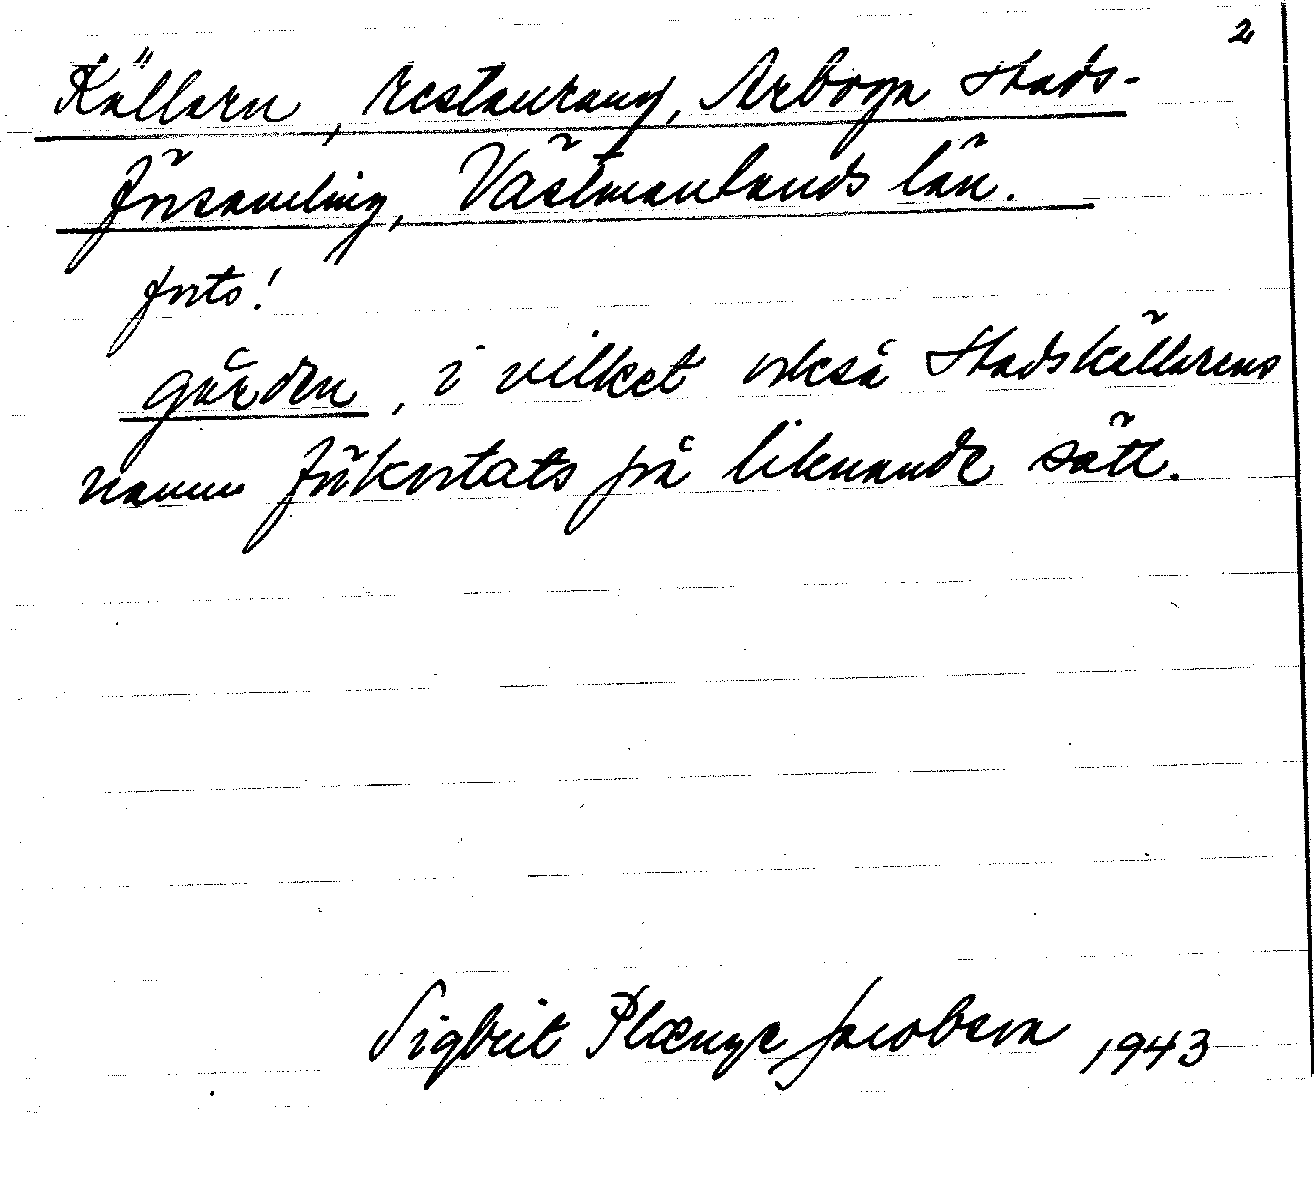 2
Källarn, restaurang, Arboga stads-
församling, Västmanlands län.
forts!
gården, i vilket också Stadskällarens
namn förkortats på liknande sätt.
Sigbrit Plænge Jacobson 1943